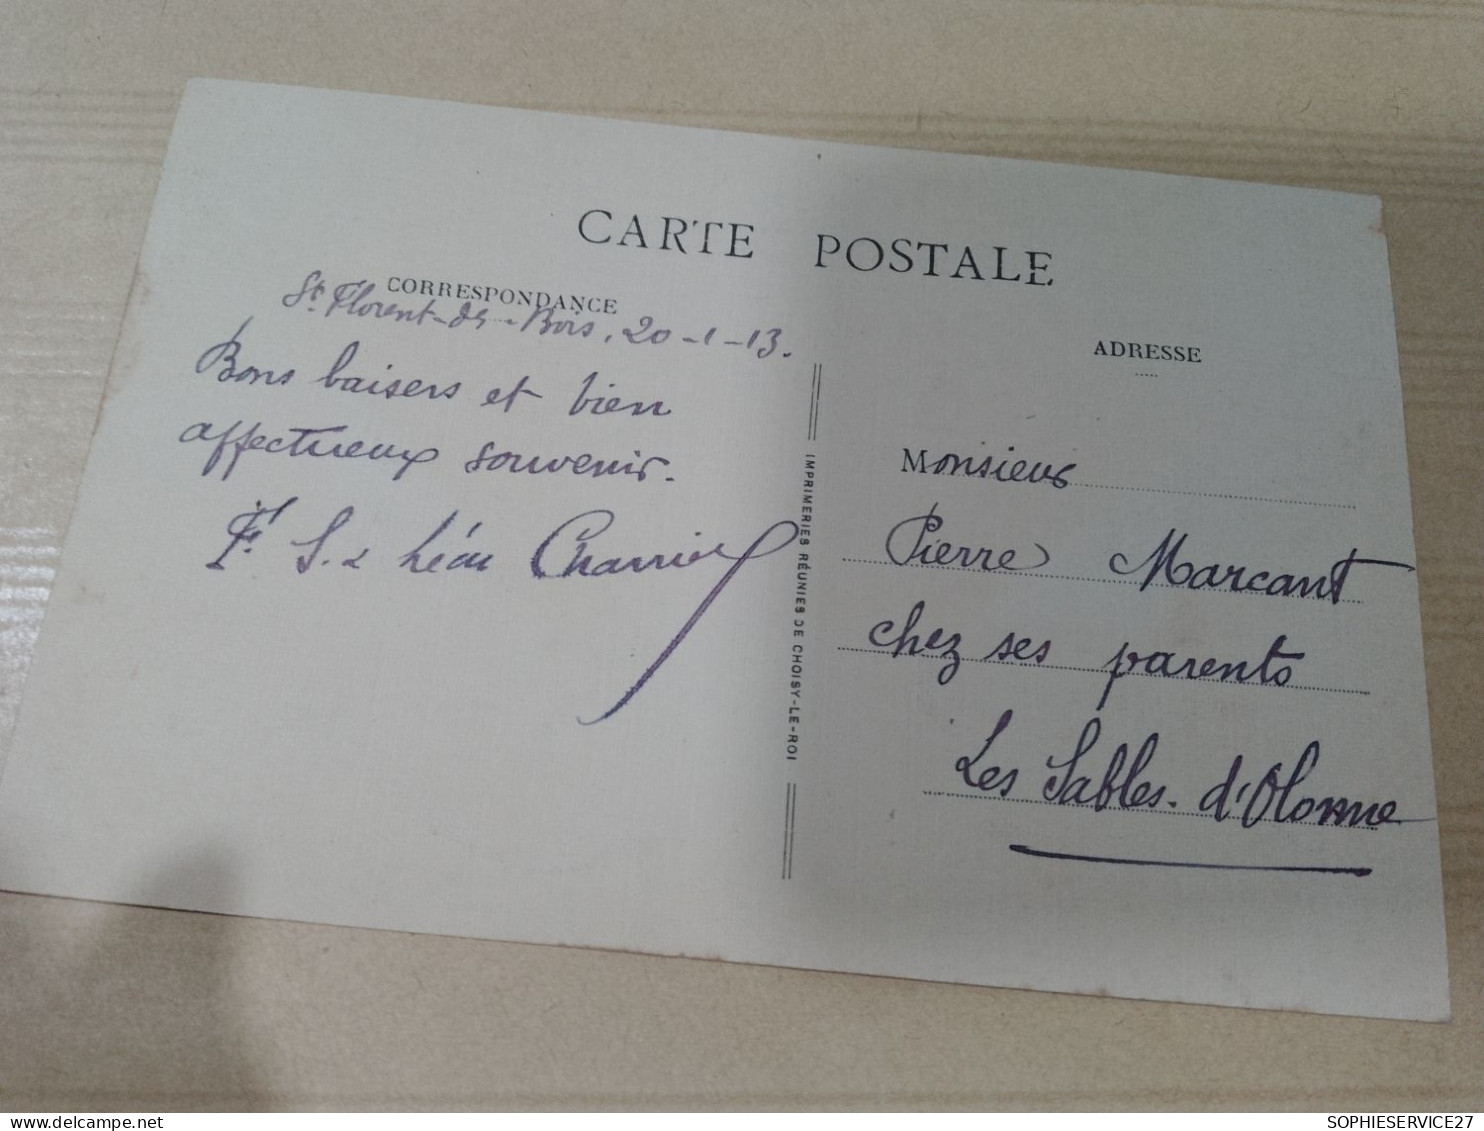 CARTE POSTALE
CORRESPONDANCE
St Florent-des-Bois, 20-1-13.
Bons baisers et bien
affectueux souvenir.
F. S. Léon
ADRESSE
Monsieur
Pierre Marcant
chez ses parents
Les Sables-d'Olonne
IMPRIMERIES RÉUNIES DE CHOISY-LE-ROI
SOPHIESERVICE27